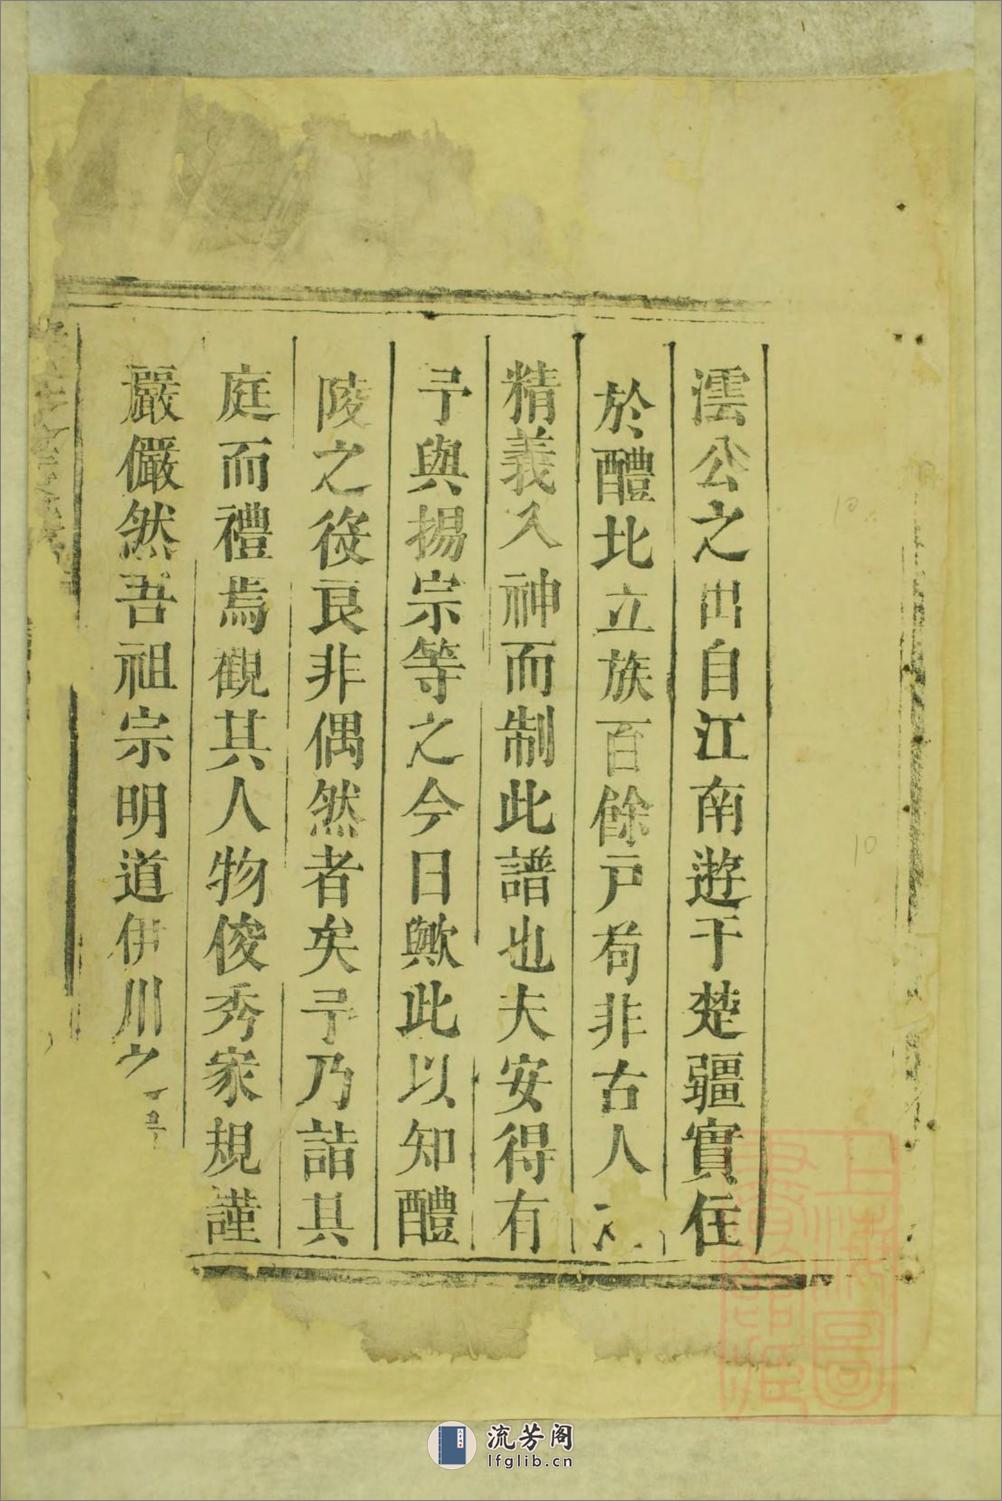 澐公之出自江南遊于楚疆實住
於醴北立族百餘戸苟非古人
精義入神而制此譜也夫安得有
予與揚宗等之今日歟此以知醴
陵之後良非偶然者矣予乃詣其
庭而禮焉觀其人物俊秀家規謹
嚴儼然吾祖宗明道伊川
上海圖書館藏
流芳阁
lfglib.cn
10
10